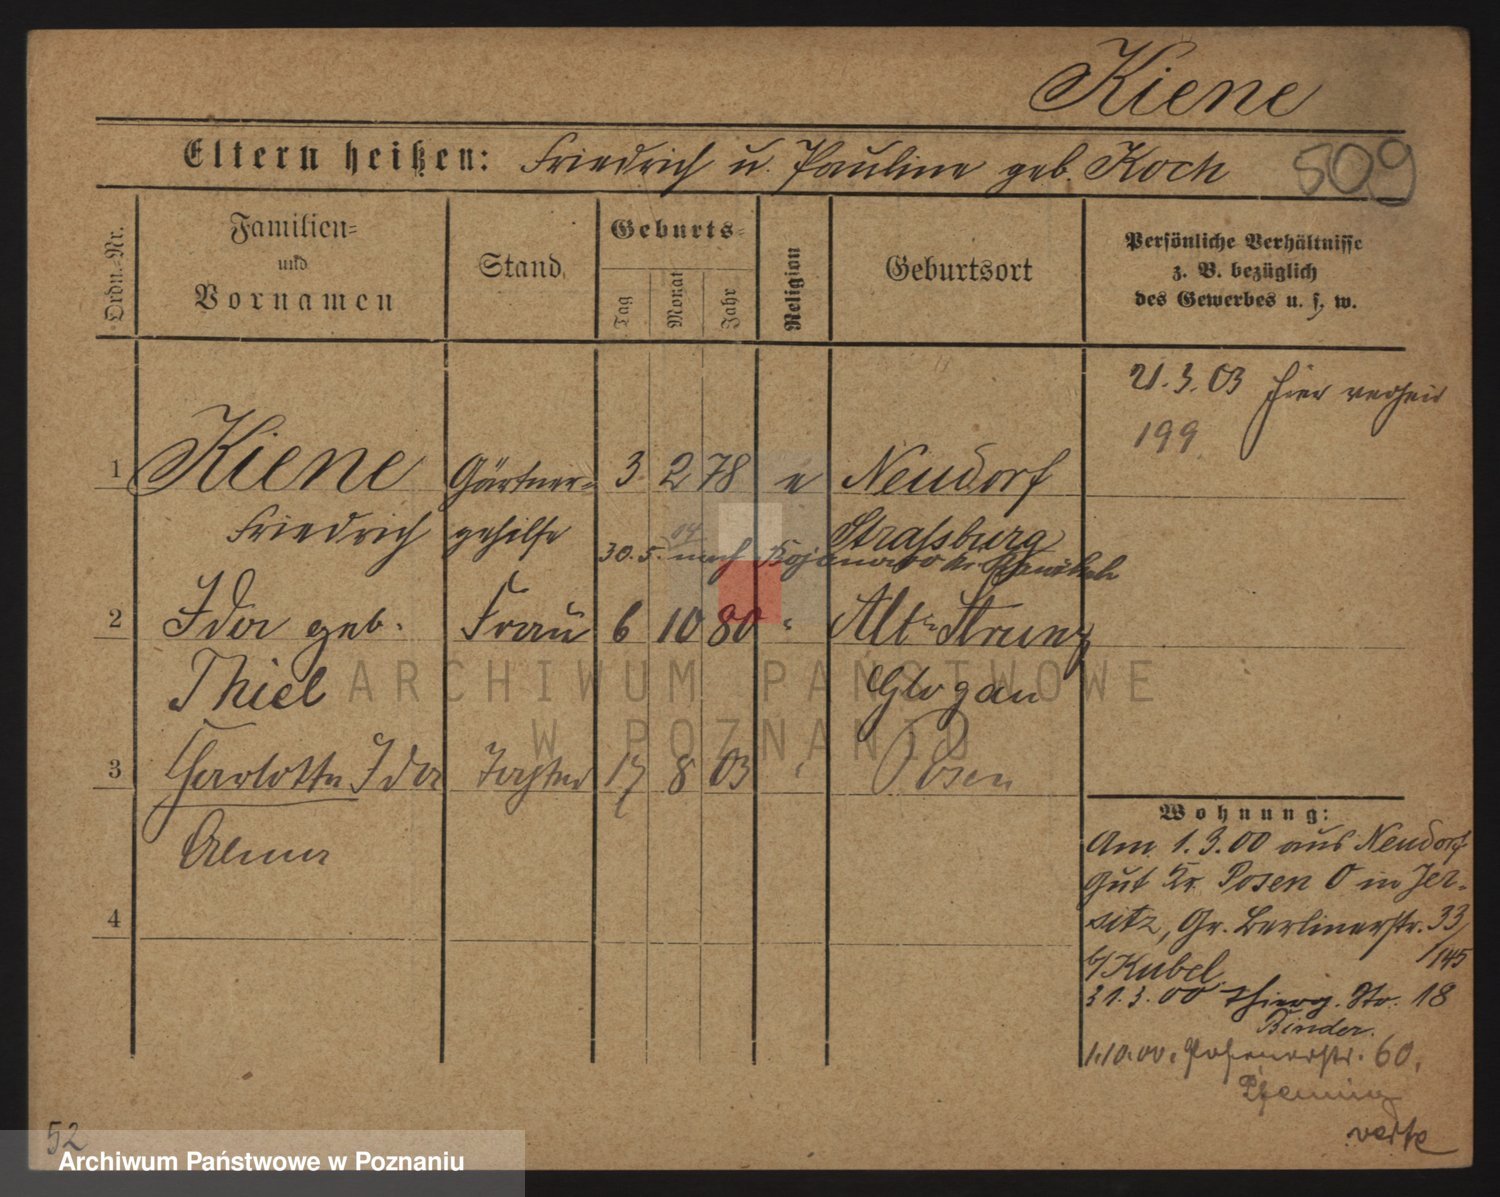 Kiene
Eltern heißen: Friedrich u. Pauline geb. Koch
509
Ordn.-Nr.
Familien-
und
Vornamen
Stand
Geburts-
Tag
Monat
Jahr
Religion
Geburtsort
Persönliche Verhältnisse
z. B. bezüglich
des Gewerbes u. s. w.
21.3.03 hier verheir
199
1 Kiene Gärtner- 3 2 78 e Neudorf
Friedrich gehilfe Straßburg
30. 5. 04 nach Bojanowo
2 Ida geb. Frau 6 10 80 " Alt-Strunz
Thiel Glogau
3 Charlotte Ida Tochter 17 8 03 " Posen
4
Wohnung:
Am 1.3.00 aus Neudorf
Gut Kr. Posen O in Jer-
sitz, Gr. Berlinerstr. 33/
b/Kubel. /145
31.3.00 Thierg. Str. 18
Binder.
1.10.00. Posenerstr. 60.
verte
52
ARCHIWUM PAŃSTWOWE
W POZNANIU
Archiwum Państwowe w Poznaniu